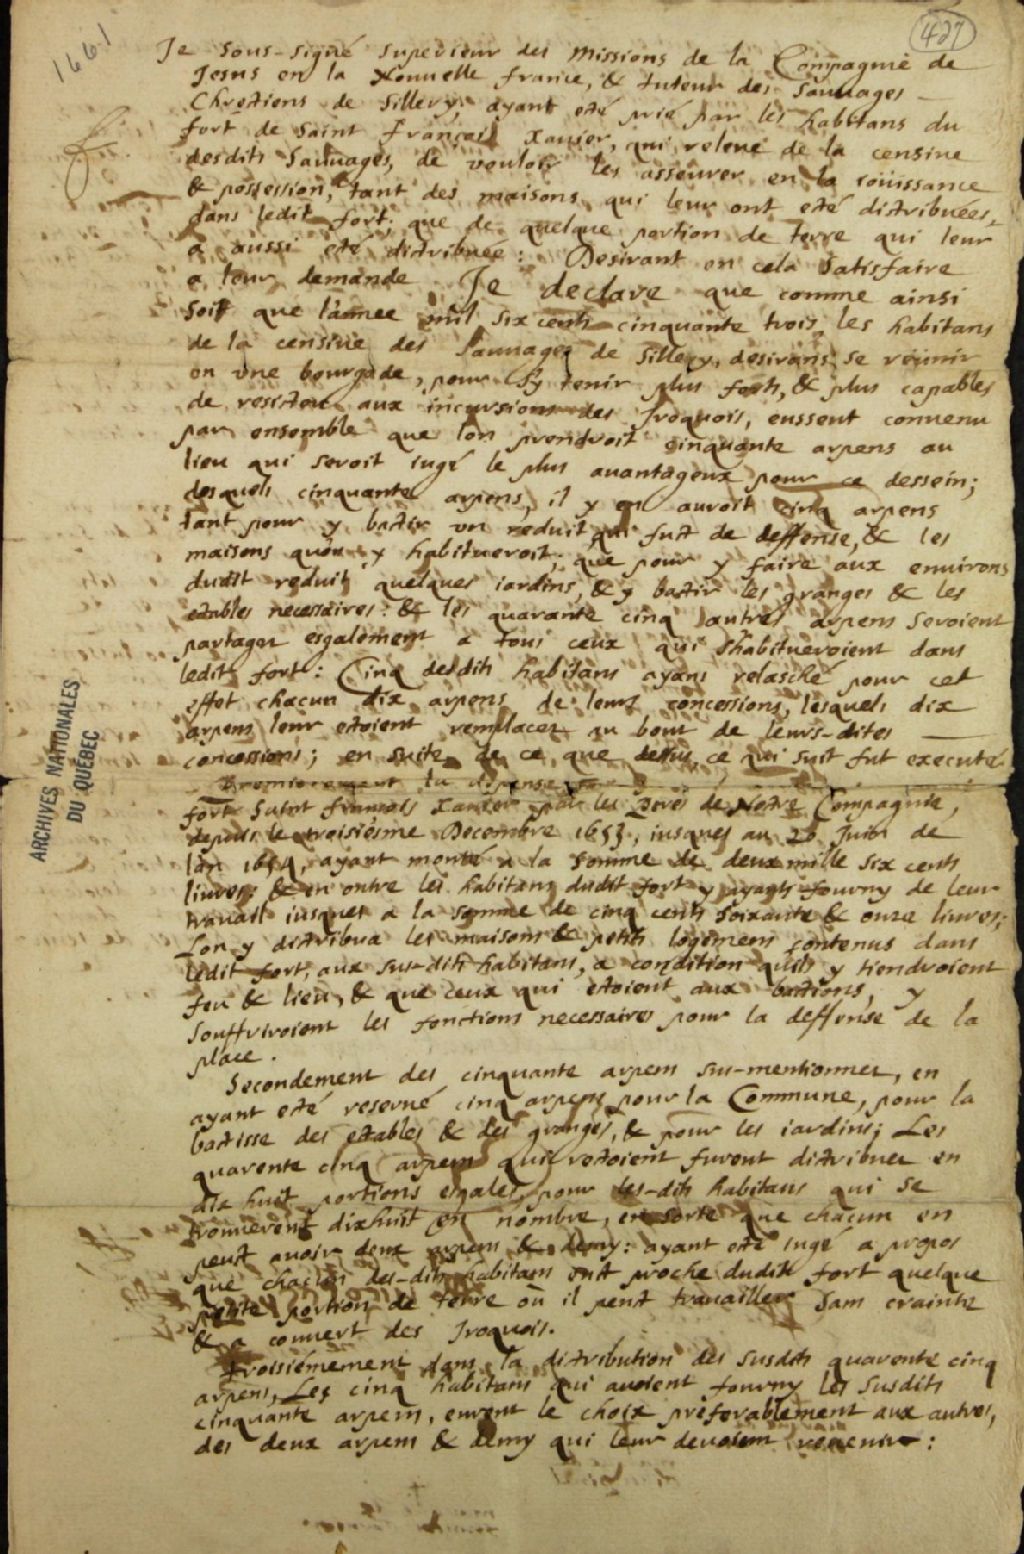 1661
427
Je sous-signé superieur des Missions de la Compagnie de
Jesus en la Nouuelle france, & tuteur des Sauuages
Chrestiens de Sillery, ayant esté prié par les habitans du
fort de Saint françois Xauier, qui releue de la censiue
desdits Sauuages, de vouloir les asseurer en la iouissance
& possession, tant des maisons, qui leur ont esté distribuées,
dans ledit fort, que de quelque portion de terre qui leur
a aussi esté distribuée: Desirant en cela satisfaire
a leur demande Je declare que comme ainsi
soit que l'année mil six cents cinquante trois, les habitans
de la censiue des Sauuages de Sillery, desirans se reünir
en vne bourgade, pour s'y tenir plus forts, & plus capables
de resister aux incursions des Iroquois, eussent conuenu
par ensemble que l'on prendroit cinquante arpens au
lieu qui seroit iugé le plus auantageux pour ce dessein;
desquels cinquante arpens, il y en auroit cinq arpens
tant pour y bastir vn reduit qui fust de deffense, & les
maisons qu'on y habitueroit, que pour y faire aux enuirons
dudit reduit quelques iardins, & y bastir les granges & les
estables necessaires: & les quarante cinq autres arpens seroient
partagez esgalement a tous ceux qui s'habitueroient dans
ledit fort: Cinq desdits habitans ayans relasché pour cet
effet chacun dix arpens de leurs concessions, lesquels dix
arpens leur estoient remplacez au bout de leurs-dites
concessions; en suite de ce que dessus, ce qui suit fut executé.
Premierement la dépense
fort Saint francois Xauier par les Peres de Nostre Compagnie,
depuis le troisiesme Decembre 1653, iusques au 20 Juin de
l'an 1654, ayant monté a la somme de deux mille six cents
liures; & en outre les habitans dudit fort y ayants fourny de leur
trauail iusques a la somme de cinq cents soixante & onze liures;
L'on y distribua les maisons & petits logemens contenus dans
ledit fort, aux sus-dits habitans, a condition qu'ils y tiendroient
feu & lieu, & que ceux qui estoient aux bastions, y
souffriroient les fonctions necessaires pour la deffense de la
place.
Secondement des cinquante arpens sus-mentionnez, en
ayant esté reserué cinq arpens pour la Commune, pour la
bastisse des estables & des granges, & pour les iardins; Les
quarente cinq arpens qui restoient furent distribuez en
dix huit portions esgales, pour les-dits habitans qui se
trouuerent dixhuit en nombre, en sorte que chacun en
peust auoir deux arpens & demy: ayant esté iugé a propos
que chacun des-dits habitans eust proche dudit fort quelque
petite portion de terre où il peust trauailler sans crainte
& a couuert des Iroquois.
Troisiémement dans la distribution des susdits quarente cinq
arpens, Les cinq habitans qui auoient fourny les susdits
cinquante arpens, eurent le choix preferablement aux autres,
des deux arpens & demy qui leur deuoient reuenir:
ARCHIVES NATIONALES
DU QUÉBEC